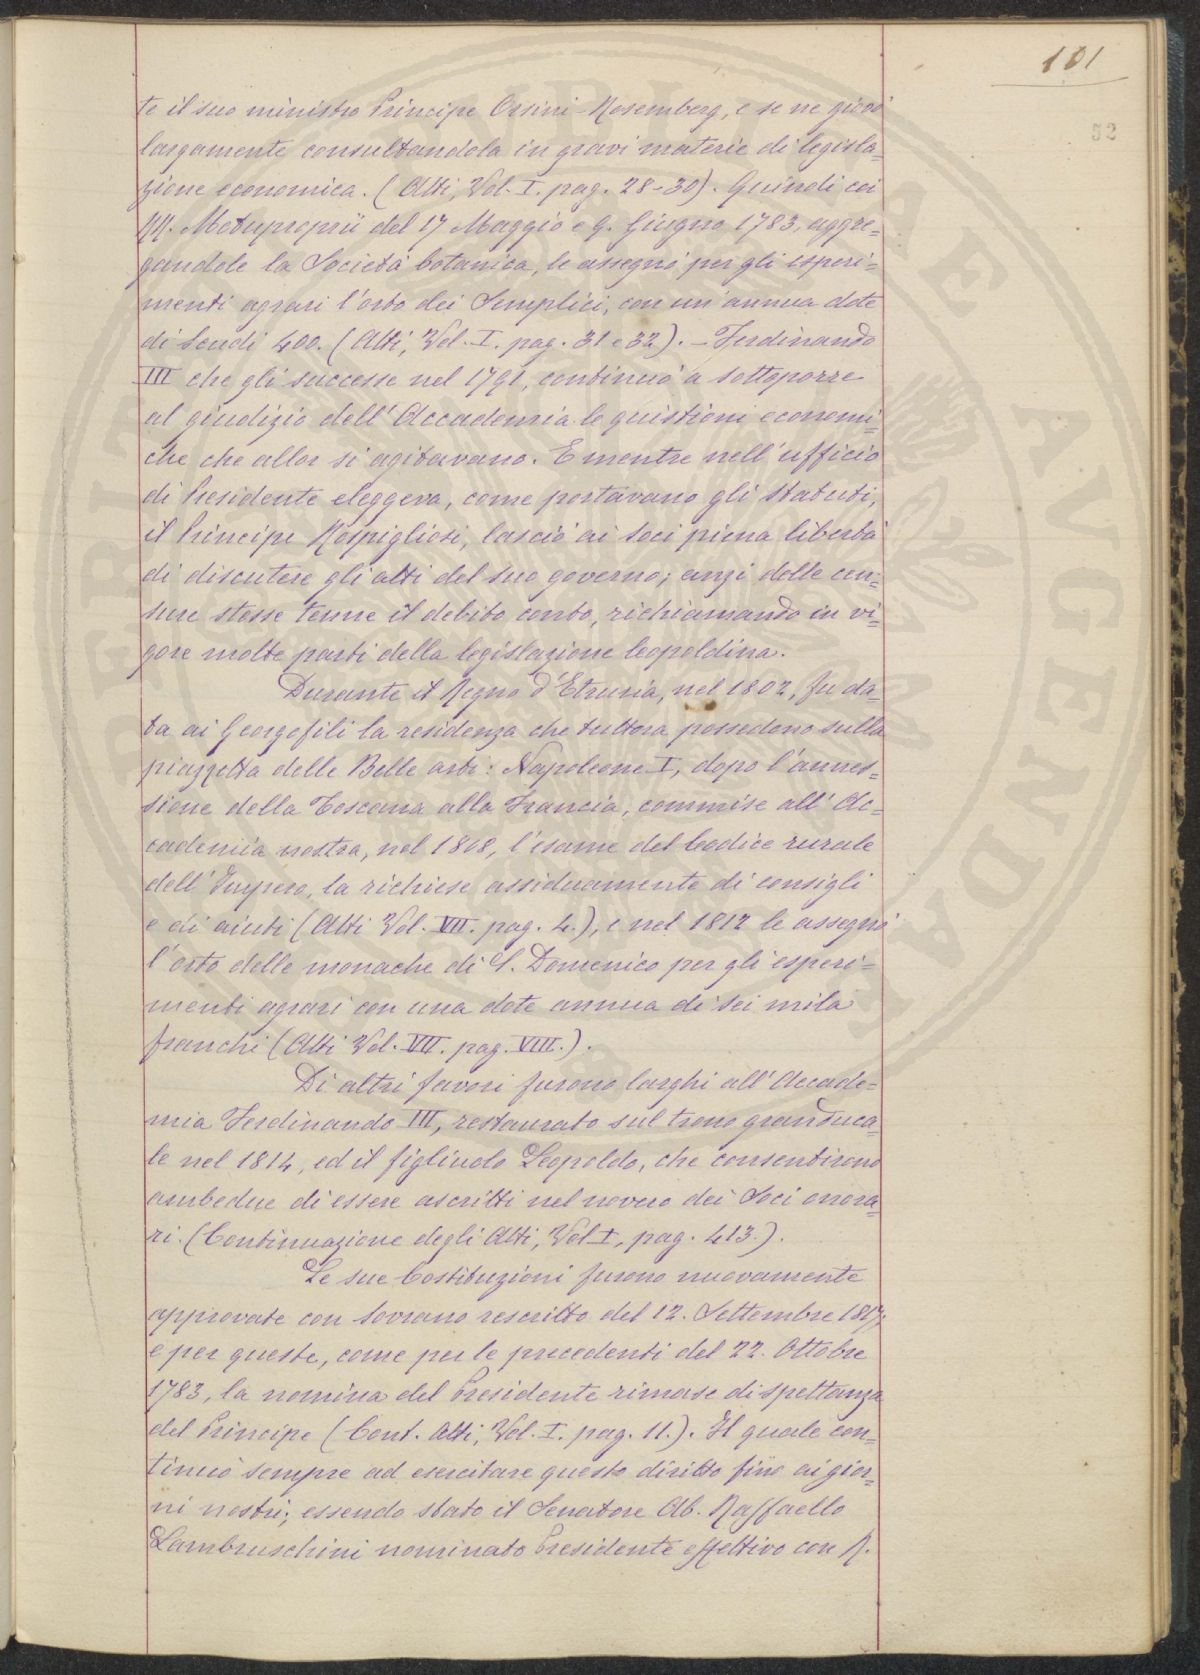 101
52
te il suo ministro Principe Orsini-Rosemberg, e se ne giovò
largamente consultandola in gravi materie di legisla=
zione economica. (Atti, Vol. I. pag. 28-30). Quindi coi
RR. Motuproprii del 17 Maggio e 9. Giugno 1783, aggre=
gandole la Società botanica, le assegnò per gli esperi=
menti agrari l'orto dei Semplici, con un'annua dote
di Scudi 400. (Atti, Vol. I. pag. 31 e 32). - Ferdinando
III che gli successe nel 1791, continuò a sottoporre
al giudizio dell'Accademia le quistioni economi=
che che allor si agitavano. E mentre nell'ufficio
di Presidente eleggeva, come portavano gli Statuti,
il Principe Rospigliosi, lasciò ai Soci piena libertà
di discutere gli atti del suo governo; anzi delle cen=
sure stesse tenne il debito conto, richiamando in vi=
gore molte parti della legislazione leopoldina.
Durante il Regno d'Etruria, nel 1802, fu da=
ta ai Georgofili la residenza che tuttora possedono sulla
piazzetta delle Belle arti: Napoleone I, dopo l'annes=
sione della Toscana alla Francia, commise all'Ac=
cademia nostra, nel 1808, l'esame del Codice rurale
dell'Impero, la richiese assiduamente di consigli
e di aiuti (Atti Vol. VII. pag. 4.), e nel 1812 le assegnò
l'orto delle monache di S. Domenico per gli esperi=
menti agrari con una dote annua di sei mila
franchi (Atti Vol. VII. pag. VIII.).
Di altri favori furono larghi all'Accade=
mia Ferdinando III, restaurato sul trono granduca=
le nel 1814, ed il figliuolo Leopoldo, che consentirono
ambedue di essere ascritti nel novero dei Soci onora=
ri. (Continuazione degli Atti, Vol I, pag. 413.).
Le sue Costituzioni furono nuovamente
approvate con Sovrano rescritto del 12. Settembre 1817;
e per queste, come per le precedenti del 22. Ottobre
1783, la nomina del Presidente rimase di spettanza
del Principe (Cont. Atti, Vol. I. pag. 11.). Il quale con=
tinuò sempre ad esercitare questo diritto fino ai gior=
ni nostri; essendo stato il Senatore Ab. Raffaello
Lambruschini nominato Presidente effettivo con R.